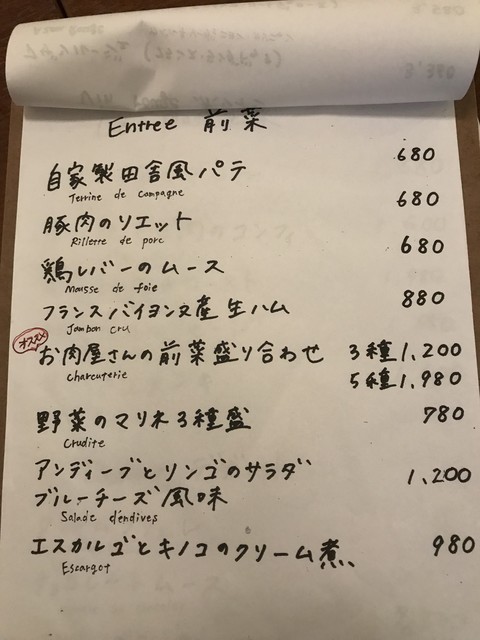 Entree 前菜
自家製田舎風パテ 680
Terrine de Campagne
豚肉のリエット 680
Rillette de porc
鶏レバーのムース 680
Mousse de foie
フランスバイヨンヌ産生ハム 880
Jambon cru
オススメ
お肉屋さんの前菜盛り合わせ 3種1,200
charcuterie 5種1,980
野菜のマリネ3種盛 780
Crudite
アンディーブとリンゴのサラダ 1,200
ブルーチーズ風味
Salade d'endives
エスカルゴとキノコのクリーム煮 980
Escargot